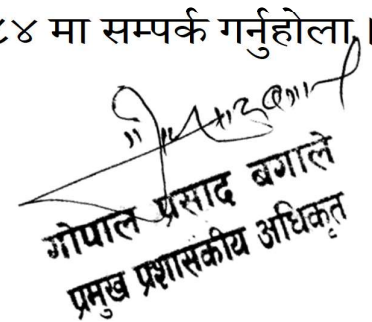 ८४ मा सम्पर्क गर्नुहोला ।
गोपाल प्रसाद बगाले
प्रमुख प्रशासकीय अधिकृत